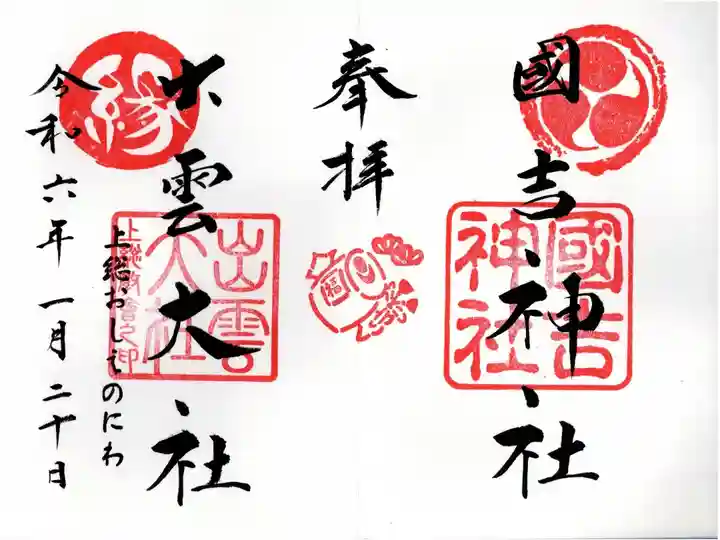 國吉神社
國吉神社
奉拝
福
縁
出雲大社
出雲大社
上総教會之印
上総おしえのにわ
令和六年一月二十日